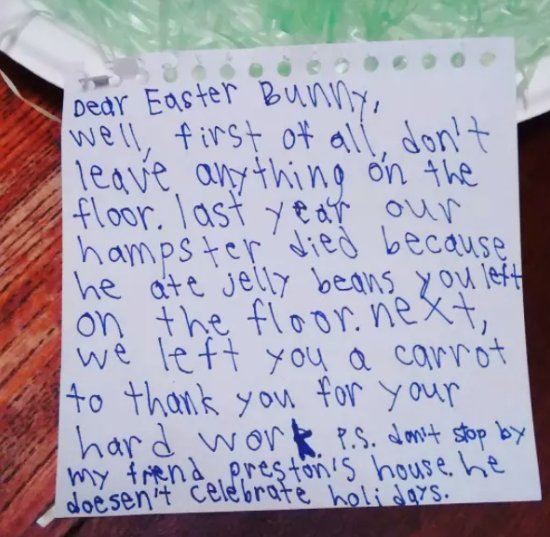 Dear Easter Bunny,
well, first of all, don't
leave anything on the
floor. last year our
hampster died because
he ate jelly beans you left
on the floor. next,
we left you a carrot
to thank you for your
hard work. P.S. don't stop by
my friend preston's house. he
doesen't celebrate holidays.